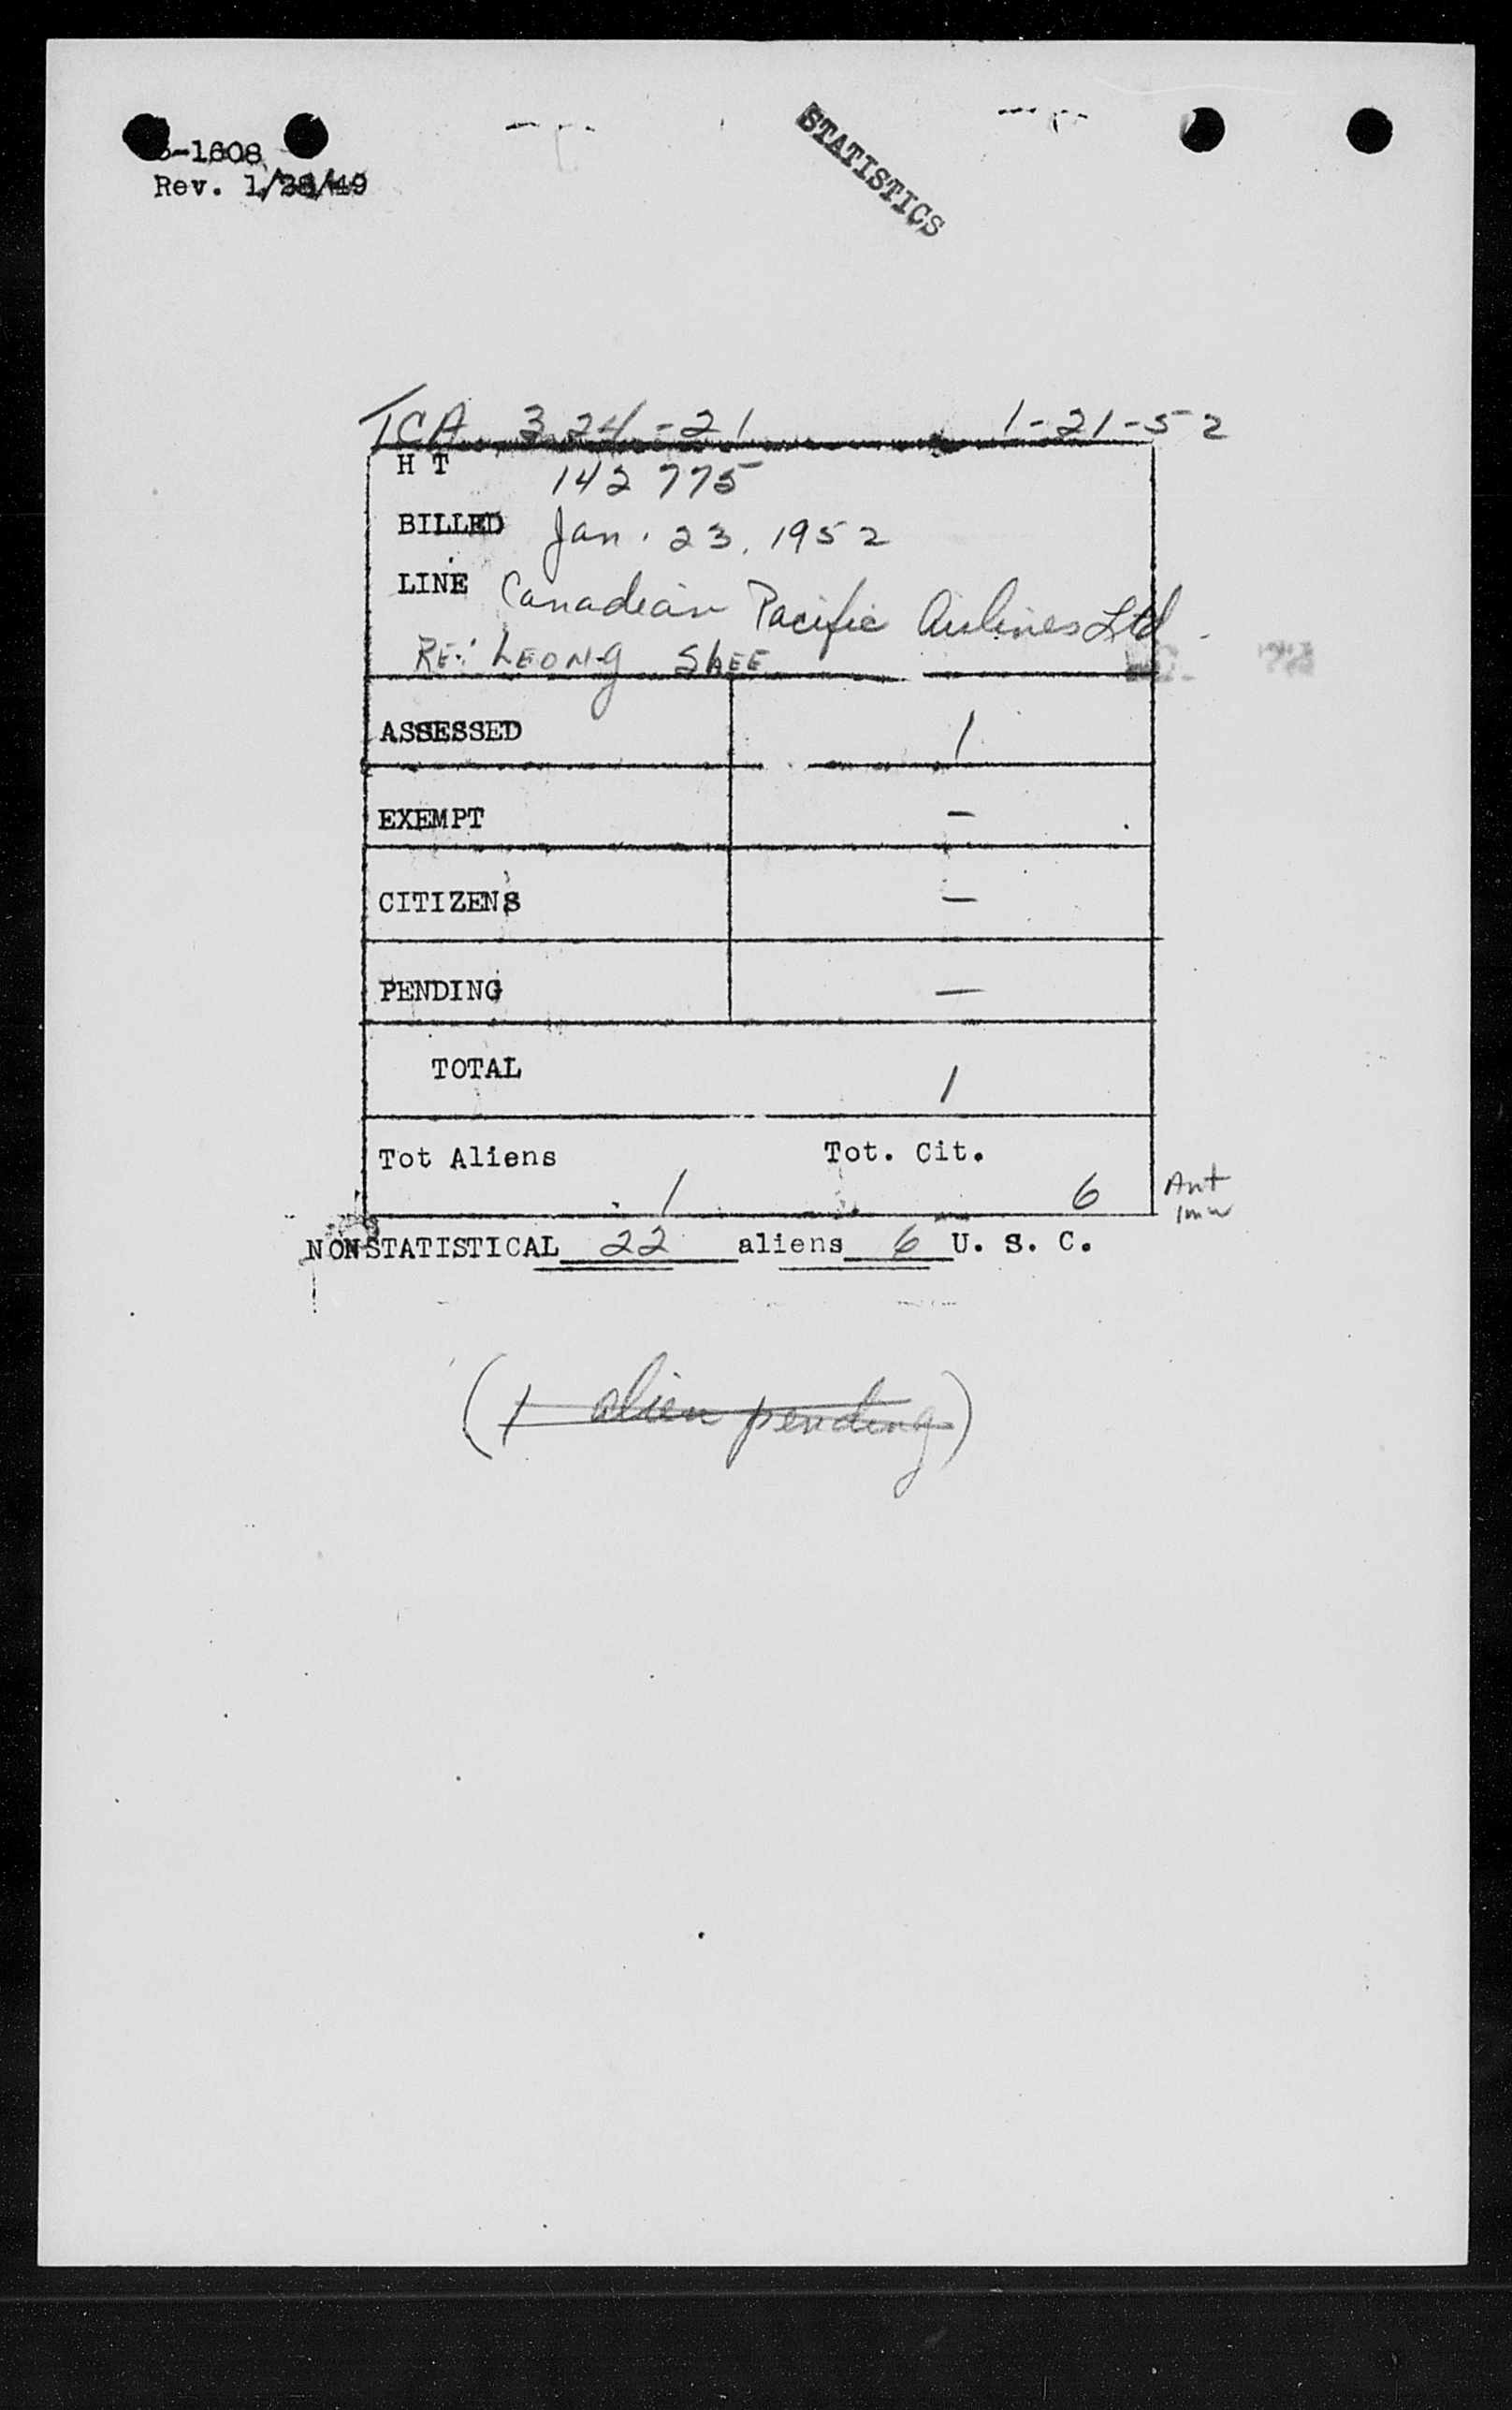 -1608
Rev. 1/28/49
STATISTICS
TCA 324-21 1-21-52
H T 142775
BILLED Jan. 23, 1952
LINE Canadian Pacific Airlines Ltd.
RE: LEONG SHEE
ASSESSED 1
EXEMPT -
CITIZENS -
PENDING -
TOTAL 1
Tot Aliens 1 Tot. Cit. 6
NONSTATISTICAL 22 aliens 6 U. S. C.
(1 alien pending)